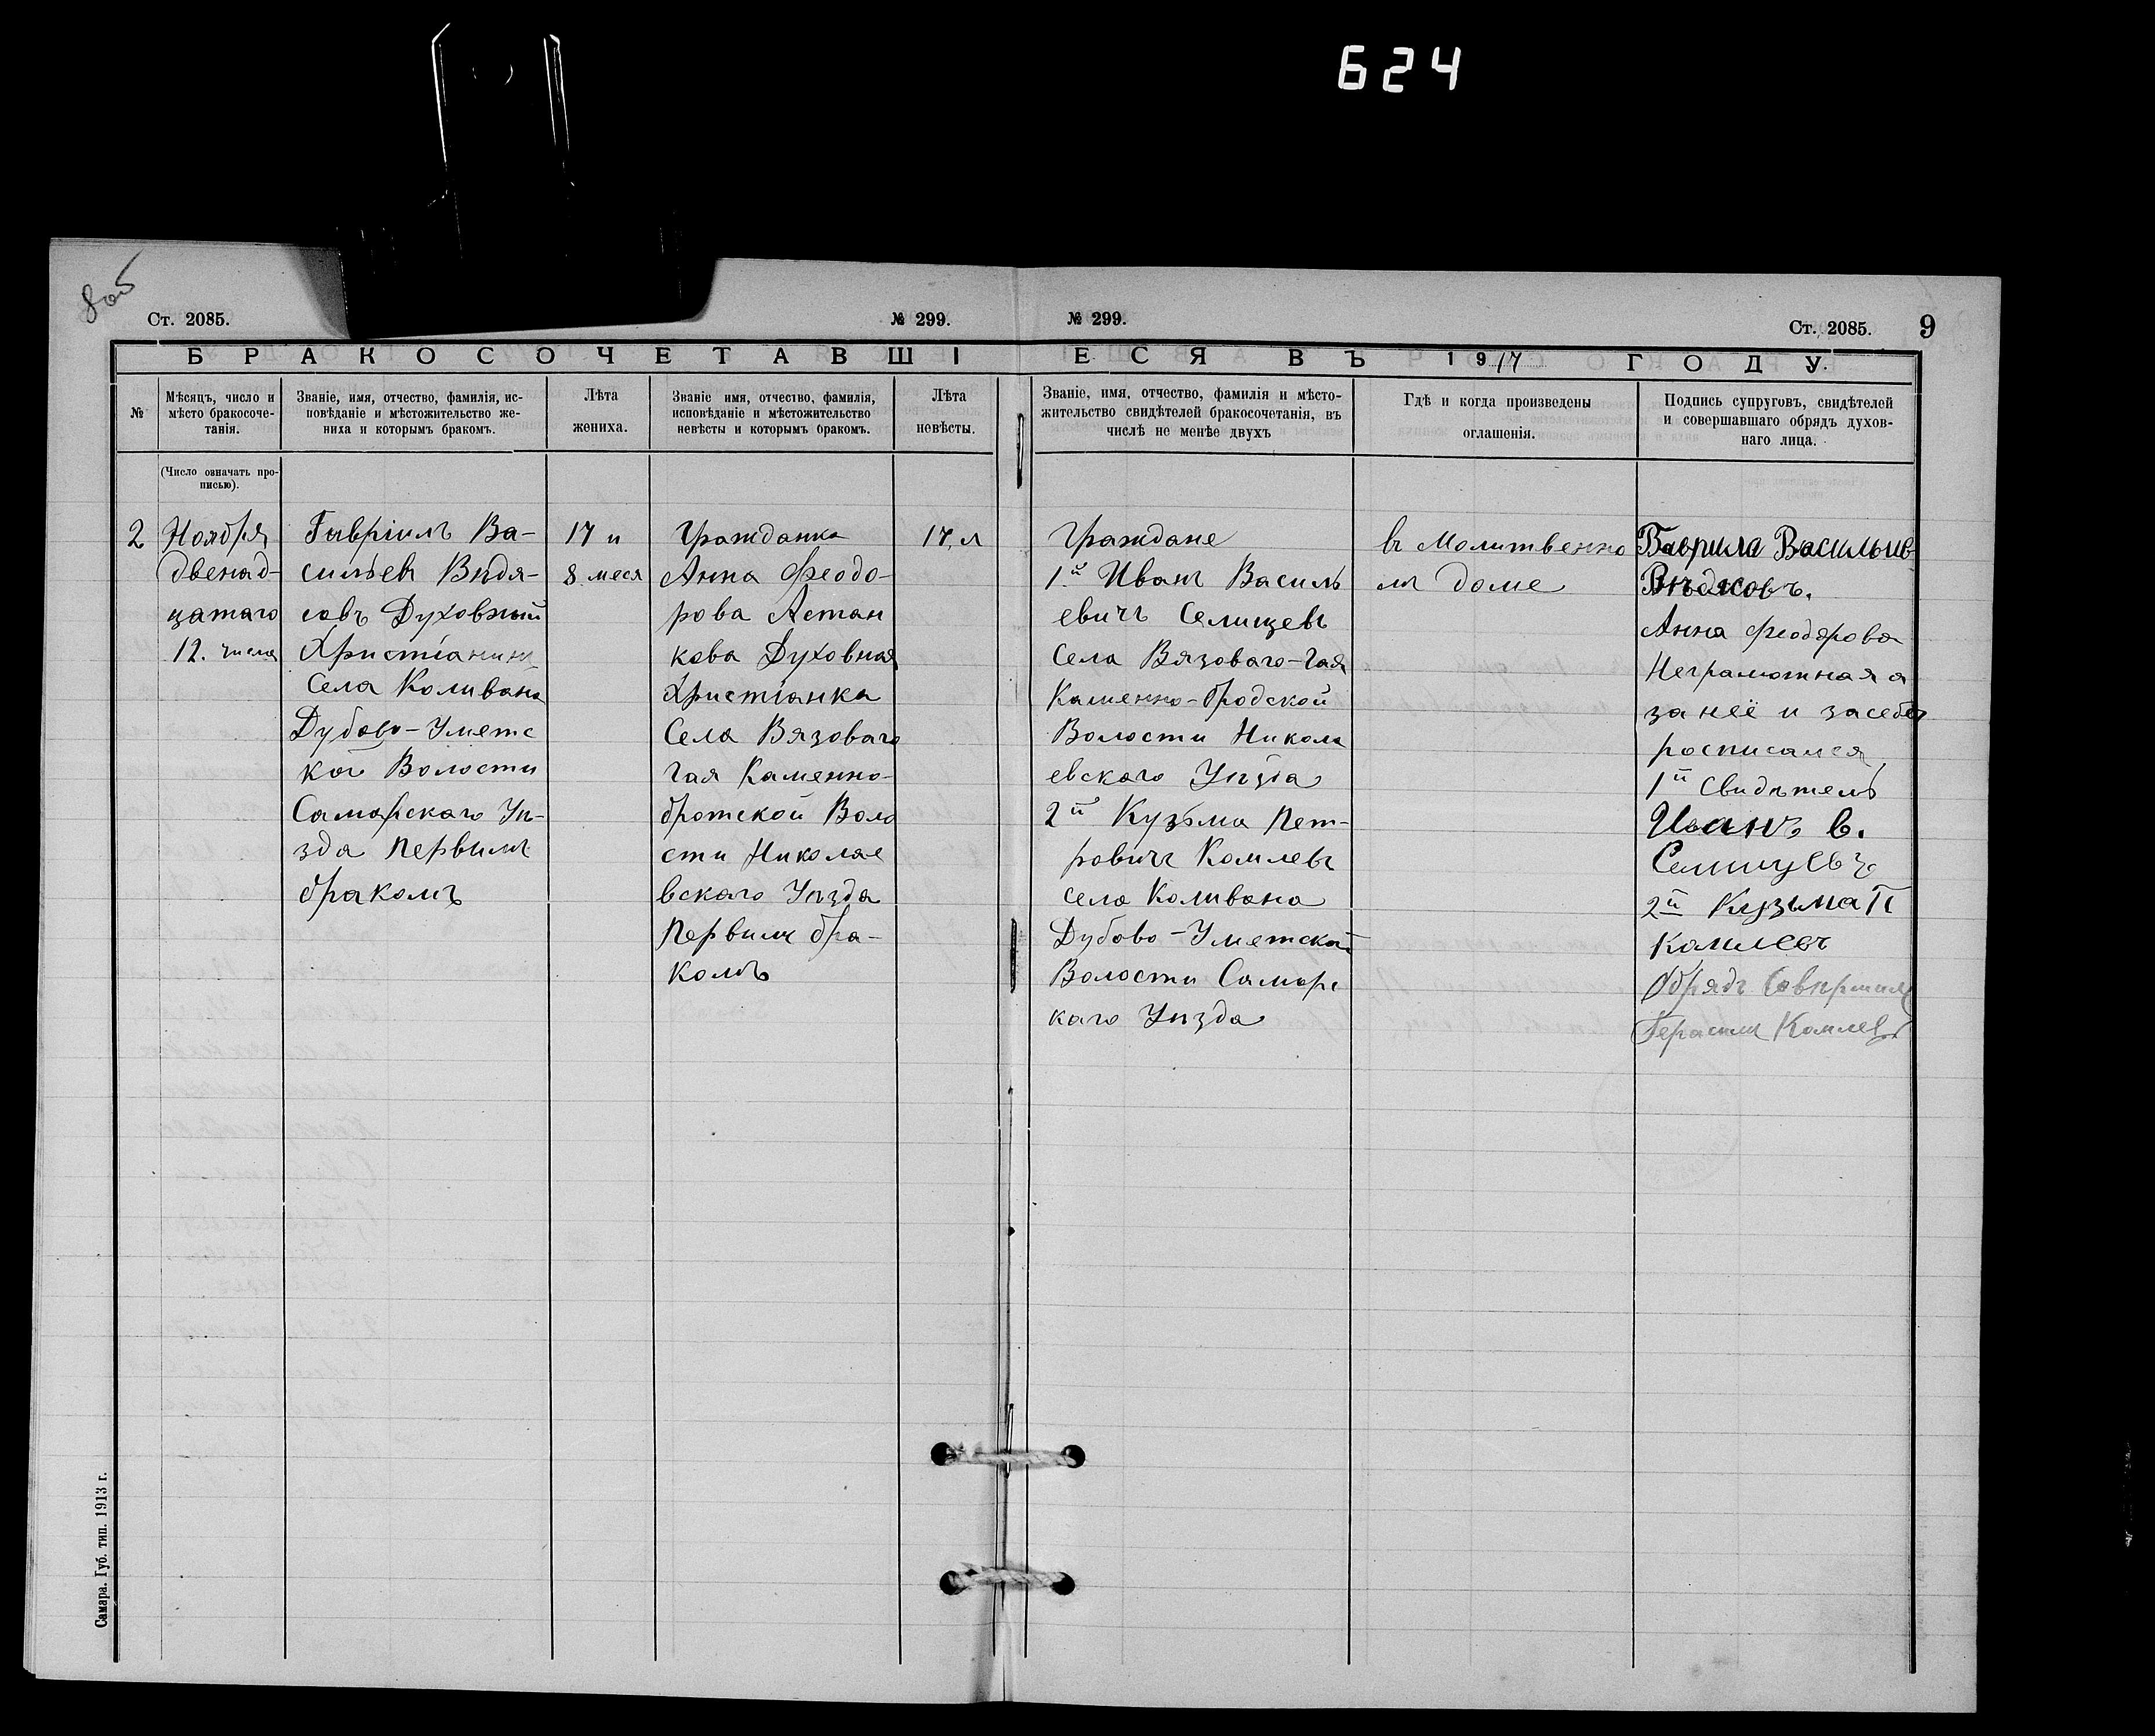 624
8об
Ст. 2085.
№ 299.
№ 299.
Ст. 2085.
9
БРАКОСОЧЕТАВШІЕСЯ ВЪ 1917 ГОДУ.
№
Мѣсяцъ, число и
мѣсто бракосоче-
танія.
(Число означать про-
писью).
Званіе, имя, отчество, фамилія, ис-
повѣданіе и мѣстожительство же-
ниха и которымъ бракомъ.
Лѣта
жениха.
Званіе имя, отчество, фамилія,
исповѣданіе и мѣстожительство
невѣсты и которымъ бракомъ.
Лѣта
невѣсты.
Званіе, имя, отчество, фамилія и мѣсто-
жительство свидѣтелей бракосочетанія, въ
числѣ не менѣе двухъ
Гдѣ и когда произведены
оглашенія.
Подпись супруговъ, свидѣтелей
и совершавшаго обрядъ духов-
наго лица.
2
Ноября
двенад-
цатаго
12. числа
Гавріилъ Ва-
сильевъ Видя-
совъ Духовный
Христіанинъ
Села Коливана
Дубово-Уметс
кой Волости
Самарскаго Уѣ-
зда Первымъ
бракомъ
17 и
8 меся
Гражданка
Анна Феодо-
рова Астан
кова Духовная
Христіанка
Села Вязоваго
Гая Каменно-
бротской Воло
сти Николае
вскаго Уѣзда
Первымъ бра-
комъ
17 л
Граждане
1й Иванъ Василь
евичъ Селищевъ
Села Вязоваго-Гая
Каменно-бродской
Волости Никола
евскаго Уѣзда
2й Кузьма Пет-
ровичъ Комлевъ
села Коливана
Дубово-Уметской
Волости Самарс
каго Уѣзда
въ Молитвенно
мъ доме
Гаврила Васильев
Видясовъ.
Анна Феодорова
Неграмотная а
за неё и за себя
росписался
1й Свидѣтель
Иванъ В.
Селищевъ
2й Кузьма П
Комлевъ
Обрядъ Совершилъ
Герасим Комлевъ
Самара. Губ. тип. 1913 г.